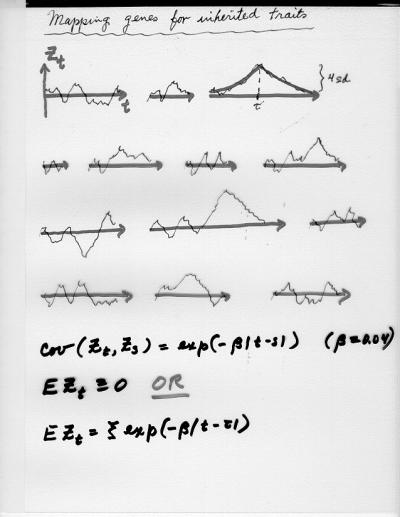 Mapping genes for inherited traits
Z_t
t
τ
4 sd
cov (Z_t, Z_s) = exp(-β|t-s|) (β=0.04)
E Z_t ≡ 0 OR
E Z_t = ξ exp(-β|t-τ|)